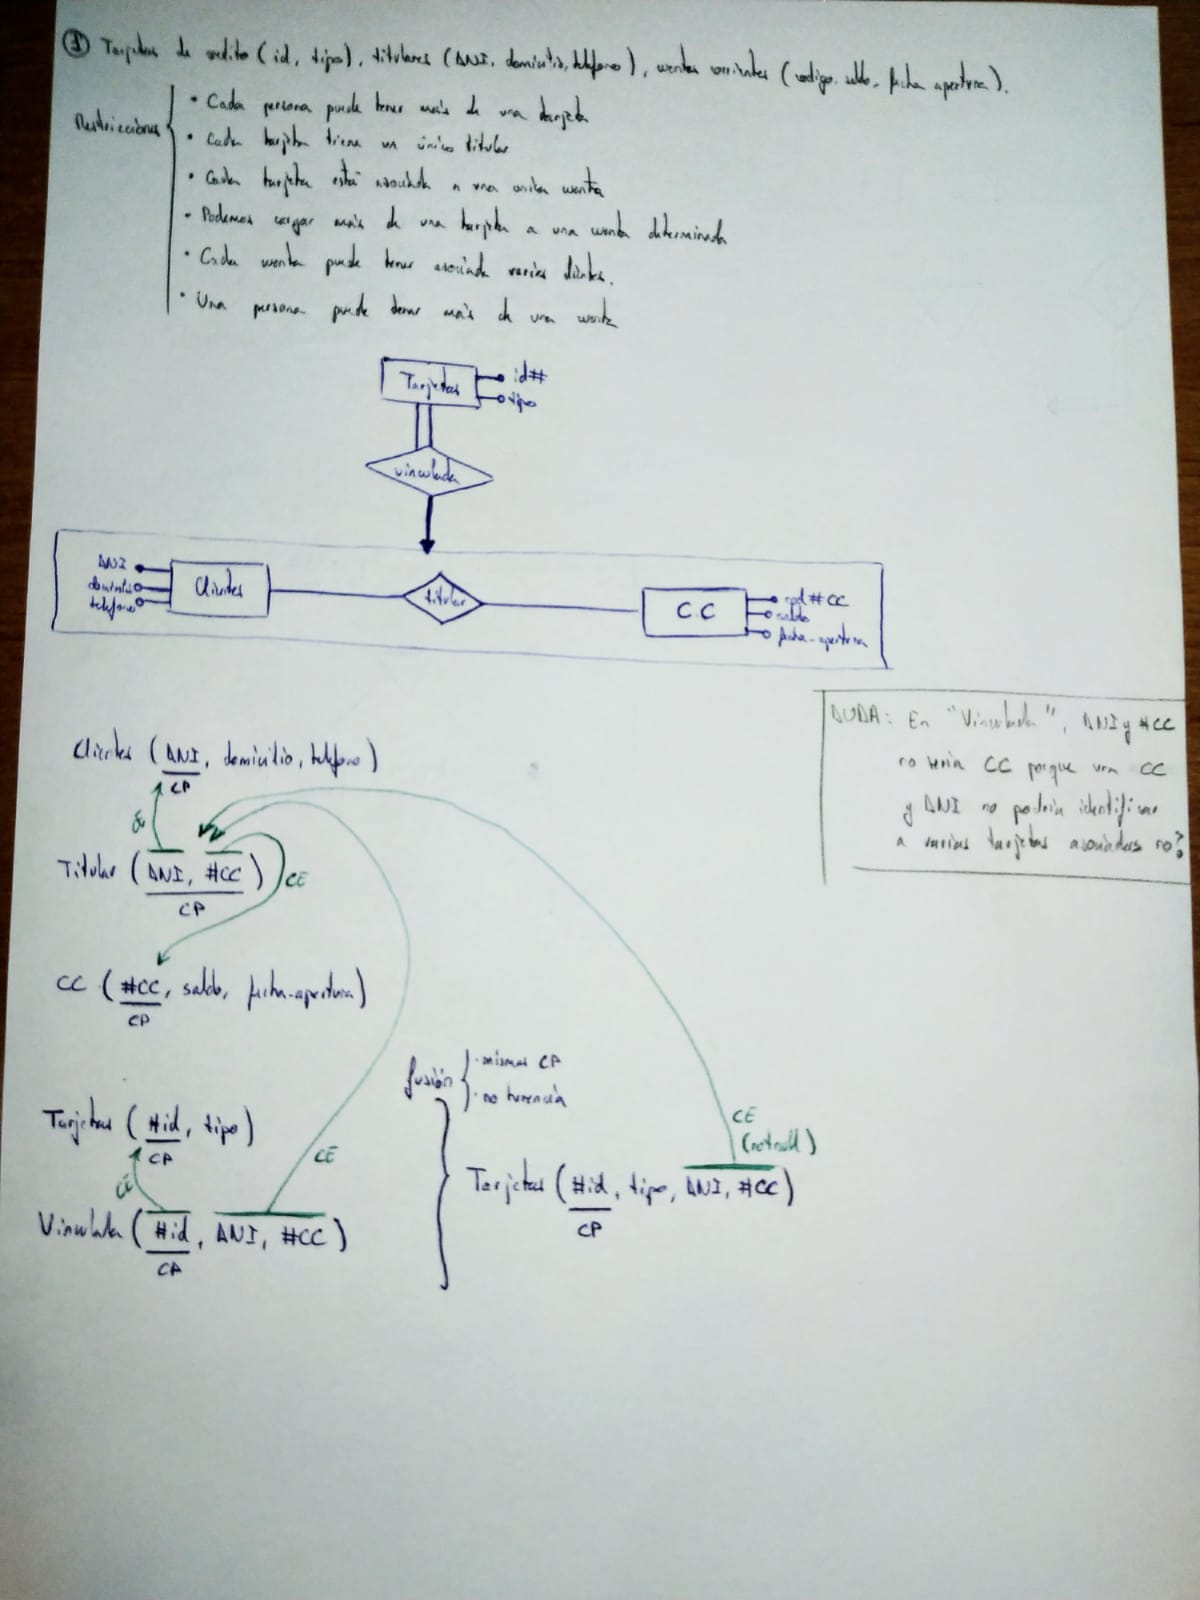 ① Tarjetas de credito (id, tipo), titulares (DNI, domicilio, telefono), cuentas corrientes (codigo, saldo, fecha apertura).
Restricciones
· Cada persona puede tener más de una tarjeta
· Cada tarjeta tiene un único titular
· Cada tarjeta está asociada a una unica cuenta
· Podemos cargar más de una tarjeta a una cuenta determinada
· Cada cuenta puede tener asociada varios clientes.
· Una persona puede tener más de una cuenta
Tarjetas
id#
tipo
vinculada
DNI
domicilio
telefono
Clientes
titular
C.C
cod#CC
saldo
fecha-apertura
DUDA: En "Vinculada", DNI y #CC
no sería CC porque una CC
y DNI no podría identificar
a varias tarjetas asociadas no?
Clientes (DNI, domicilio, telefono)
CP
CE
Titular (DNI, #CC)
CE
CP
CC (#CC, saldo, fecha-apertura)
CP
fusión
· mismas CP
· no herencia
Tarjetas (#id, tipo)
CP
CE
CE
Vinculada (#id, DNI, #CC)
CP
CE
(not null)
Tarjetas (#id, tipo, DNI, #CC)
CP